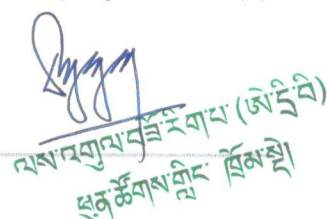 ལས་འགུལ་བཟོ་རིག་པ་ (ཨེ་ཌི་བི)
ཕུན་ཚོགས་གླིང་ ཁྲོམ་སྡེ།